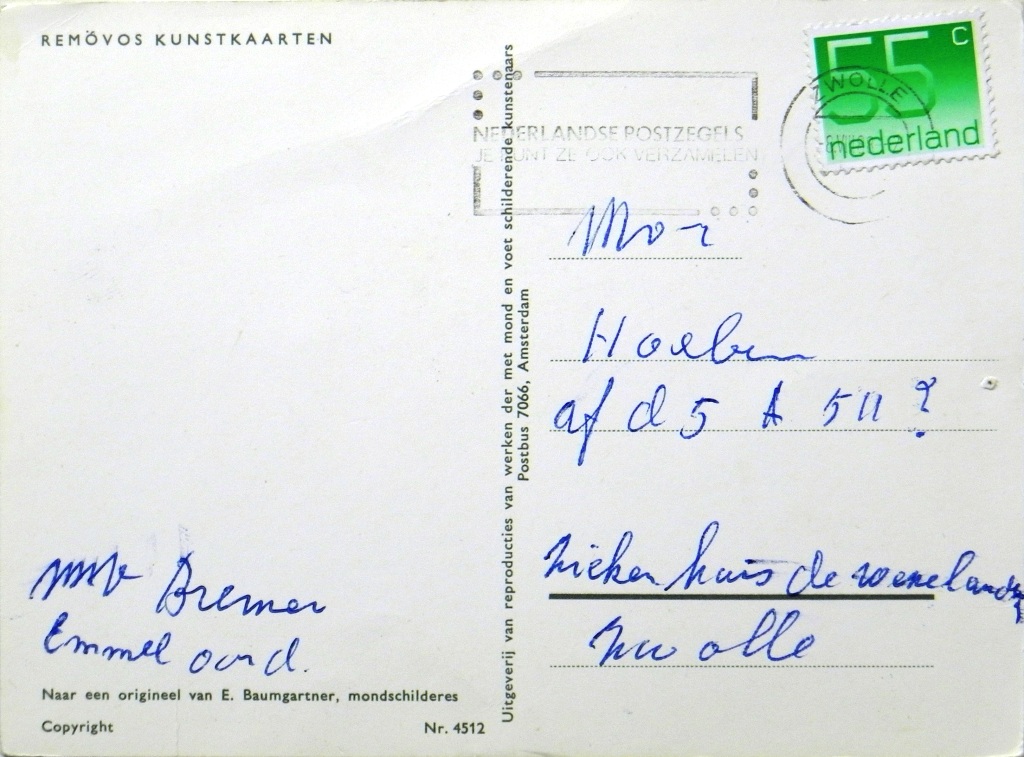 REMÖVOS KUNSTKAARTEN
55 c
nederland
ZWOLLE
NEDERLANDSE POSTZEGELS
JE KUNT ZE OOK VERZAMELEN
Uitgeverij van reproducties van werken der met mond en voet schilderende kunstenaars
Postbus 7066, Amsterdam
afd 5 A 511?
Ziekenhuis de weezenlanden
Zwolle
Bremer
Emmeloord.
Naar een origineel van E. Baumgartner, mondschilderes
Copyright
Nr. 4512